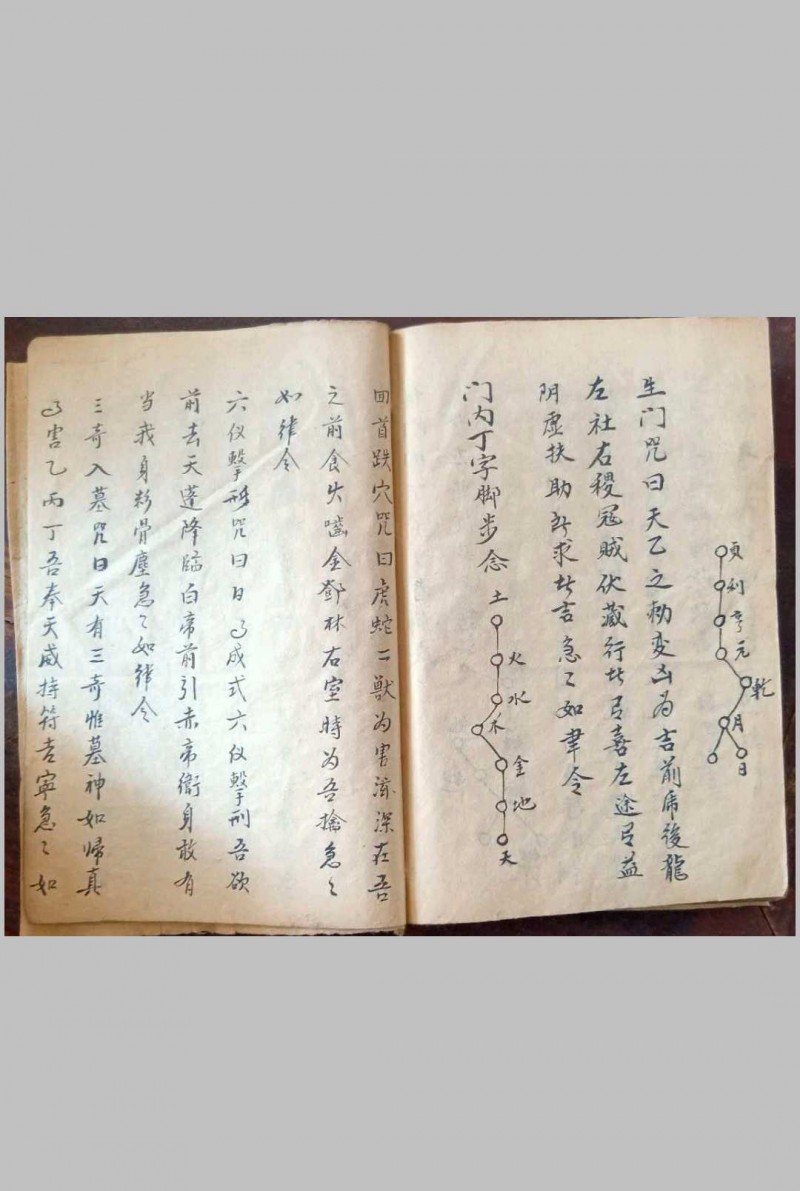 贞利亨元
乾
月
日
生门咒曰天乙之勅变凶为吉前虎後龍
左社右稷冦賊伏藏行此有喜左途有益
阴虛扶助所求皆吉急〻如律令
门内丁字脚步念
土
火
水
木
金
地
天
回首跌穴咒曰虎蛇二獸为害流深在吾
之前食火嚙金鄧林右室時为吾擒急〻
如律令
六仪擊形咒曰日 成式六仪擊刑吾欲
前去天蓬降臨白帝前引赤帝衛身敢有
当我身粉骨塵急〻如律令
三奇入墓咒曰天有三奇惟墓神如帰真
害乙丙丁吾奉天威持符吉寧急〻如